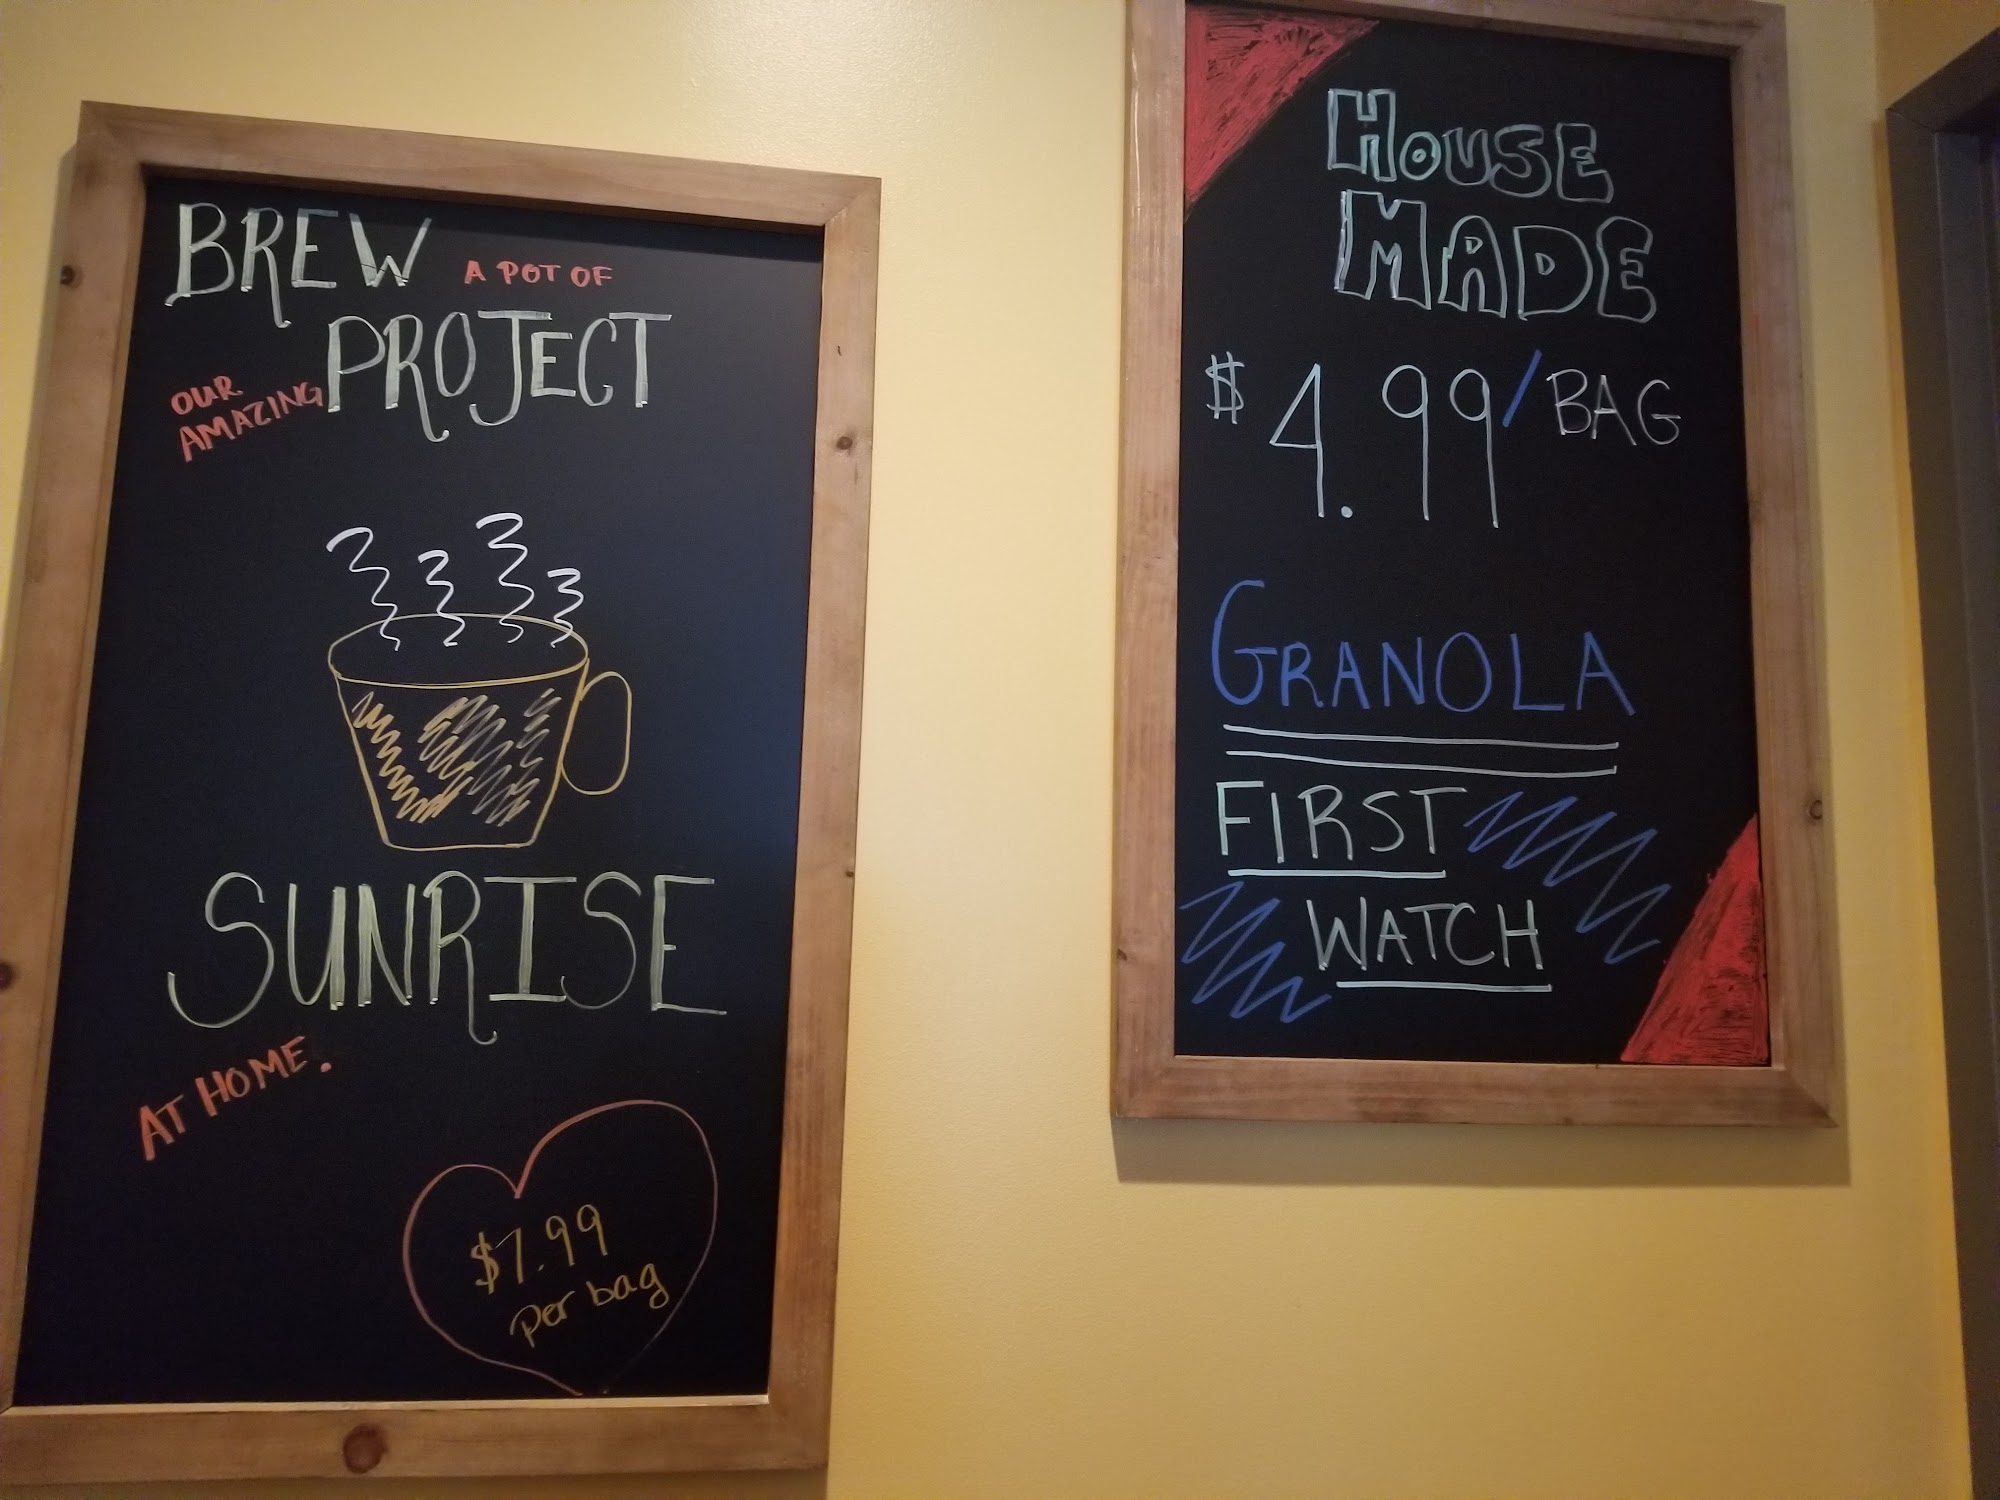 BREW A POT OF
OUR AMAZING PROJECT
SUNRISE
AT HOME.
$7.99
per bag
HOUSE
MADE
$4.99/BAG
GRANOLA
FIRST
WATCH